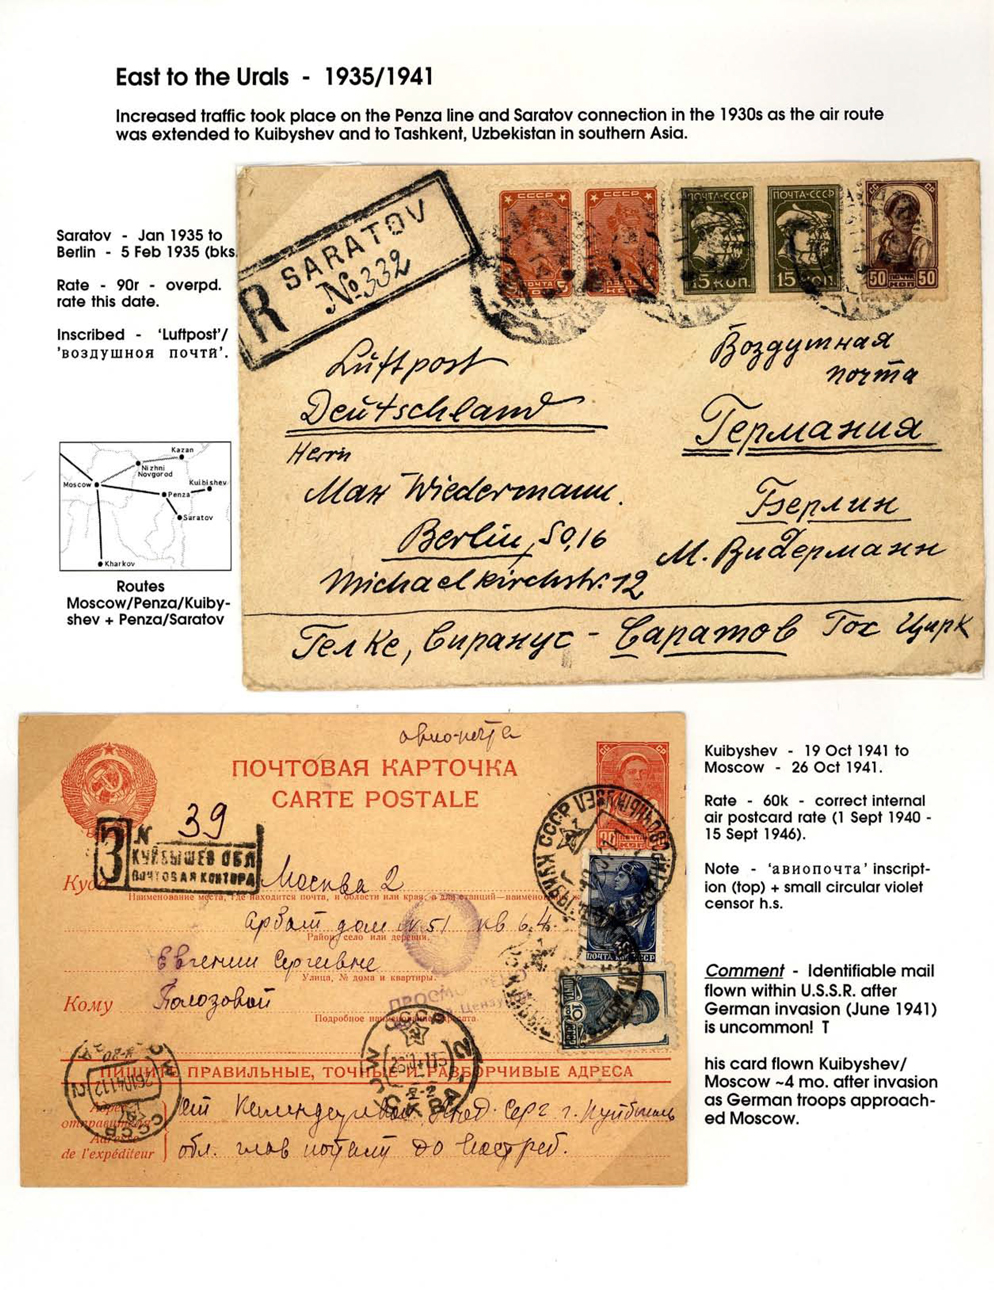 East to the Urals - 1935/1941
Increased traffic took place on the Penza line and Saratov connection in the 1930s as the air route
was extended to Kuibyshev and to Tashkent, Uzbekistan in southern Asia.
Saratov - Jan 1935 to
Berlin - 5 Feb 1935 (bks.
Rate - 90r - overpd.
rate this date.
Inscribed - 'Luftpost'/
'воздушноя почти'.
Kazan
Nizhni
Novgorod
Moscow
Kuibishev
Penza
Saratov
Kharkov
Routes
Moscow/Penza/Kuiby-
shev + Penza/Saratov
R SARATOV
№ 332
СССР
СССР
ПОЧТА-СССР
ПОЧТА-СССР
15 КОП.
15 КОП.
50 ПОЧТА КОП 50
Luftpost
Deutschland
Herrn
Max Wiedermann.
Berlin, SO, 16
Michaelkirchstr. 12
Воздушная
почта
Германия
Берлин
М. Видерманн
Гелке, Сиранус - Саратов Гос Цирк
авио-почта
ПОЧТОВАЯ КАРТОЧКА
CARTE POSTALE
З N 39
КУЙБЫШЕВ ОБЛ
ПОЧТОВАЯ КОНТОРА
Куда Москва 2
Наименование места, где находится почта, и области или края, а для станций—наименование
Арбат дом N 51 кв 64
Район, село или деревня.
Евгении Сергеевне
Улица, № дома и квартиры.
Кому Полозовой
Подробное наименование адресата
ПРОСМОТРЕНО
ПИШИТЕ ПРАВИЛЬНЫЕ, ТОЧНЫЕ И РАЗБОРЧИВЫЕ АДРЕСА
Адрес
отправителя
Adresse
de l'expéditeur
г. Куйбышев
обл. глав почтамт до востреб.
Kuibyshev - 19 Oct 1941 to
Moscow - 26 Oct 1941.
Rate - 60k - correct internal
air postcard rate (1 Sept 1940 -
15 Sept 1946).
Note - 'авиопочта' inscript-
ion (top) + small circular violet
censor h.s.
Comment - Identifiable mail
flown within U.S.S.R. after
German invasion (June 1941)
is uncommon! T
his card flown Kuibyshev/
Moscow ~4 mo. after invasion
as German troops approach-
ed Moscow.